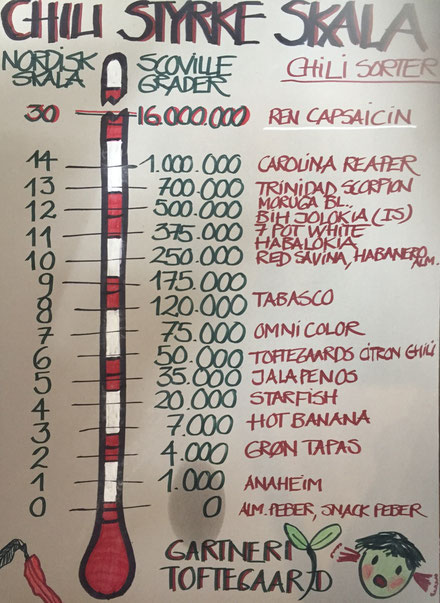 CHILI STYRKE SKALA
NORDISK SKALA SCOVILLE GRADER CHILI SORTER
30 16.000.000 REN CAPSAICIN
14 1.000.000 CAROLINA REAPER
13 700.000 TRINIDAD SCORPION
MORUGA BL.,
12 500.000 BIH JOLOKIA (IS)
11 375.000 7 POT WHITE
HABALOKIA
10 250.000 RED SAVINA, HABANERO ALM.
9 175.000
8 120.000 TABASCO
7 75.000 OMNICOLOR
6 50.000 TOFTEGAARDS CITRON CHILI
5 35.000 JALAPENOS
4 20.000 STARFISH
3 7.000 HOT BANANA
2 4.000 GRØN TAPAS
1 1.000 ANAHEIM
0 0 ALM. PEBER, SNACK PEBER
GARTNERI
TOFTEGAARD